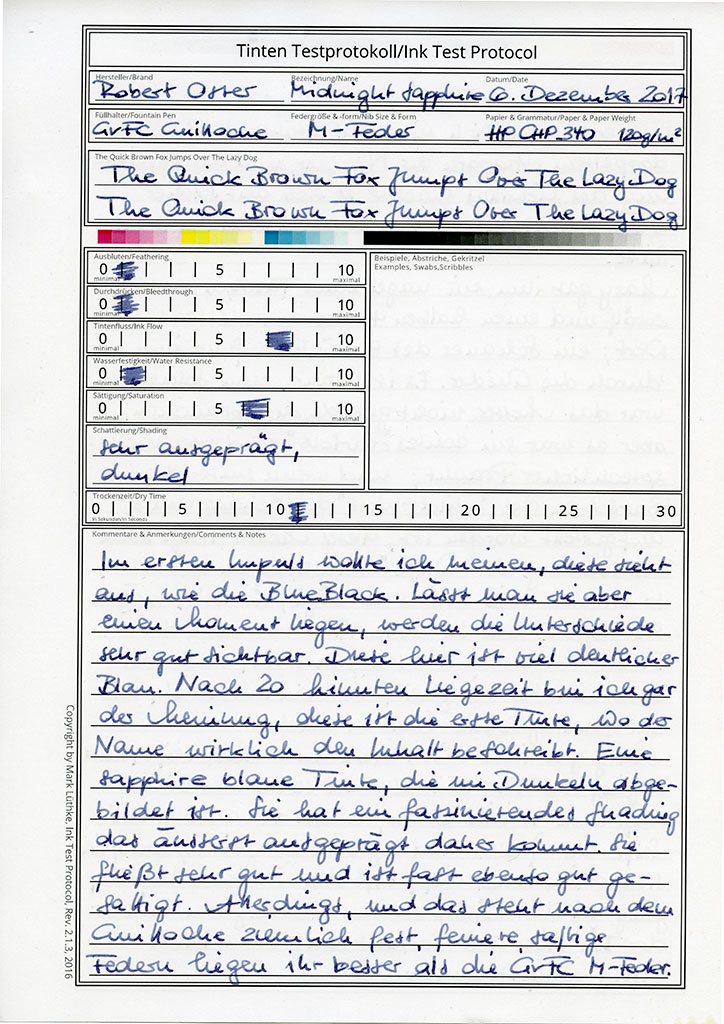 Tinten Testprotokoll/Ink Test Protocol
Hersteller/Brand Bezeichnung/Name Datum/Date
Robert Oster Midnight Sapphire 6. Dezember 2017
Füllhalter/Fountain Pen Federgröße & -form/Nib Size & Form Papier & Grammatur/Paper & Paper Weight
GvFC Guilloche M-Feder HP CHP 340 120g/m²
The Quick Brown Fox Jumps Over The Lazy Dog
The Quick Brown Fox Jumps Over The Lazy Dog
The Quick Brown Fox Jumps Over The Lazy Dog
Ausbluten/Feathering
0 5 10
minimal maximal
Durchdrücken/Bleedthrough
0 5 10
minimal maximal
Tintenfluss/Ink Flow
0 5 10
minimal maximal
Wasserfestigkeit/Water Resistance
0 5 10
minimal maximal
Sättigung/Saturation
0 5 10
minimal maximal
Schattierung/Shading
sehr ausgeprägt,
dunkel
Beispiele, Abstriche, Gekritzel
Examples, Swabs,Scribbles
Trockenzeit/Dry Time
0 5 10 15 20 25 30
in Sekunden/in Seconds
Kommentare & Anmerkungen/Comments & Notes
Im ersten Impuls wollte ich meinen, diese sieht
aus, wie die BlueBlack. Lässt man sie aber
einen Moment liegen, werden die Unterschiede
sehr gut sichtbar. Diese hier ist viel deutlicher
Blau. Nach 20 Minuten Liegezeit bin ich gar
der Meinung, diese ist die erste Tinte, wo der
Name wirklich den Inhalt beschreibt. Eine
sapphire blaue Tinte, die im Dunkeln abge-
bildet ist. Sie hat ein faszinierendes Shading
das äusserst ausgeprägt daher kommt. Sie
fließt sehr gut und ist fast ebenso gut ge-
sättigt. Allerdings, und das steht nach dem
Guilloche ziemlich fest, feinere saftige
Federn liegen ihr besser als die GvFC M-Feder.
Copyright by Mark Lüthke, Ink Test Protocol, Rev. 2.1.3, 2016